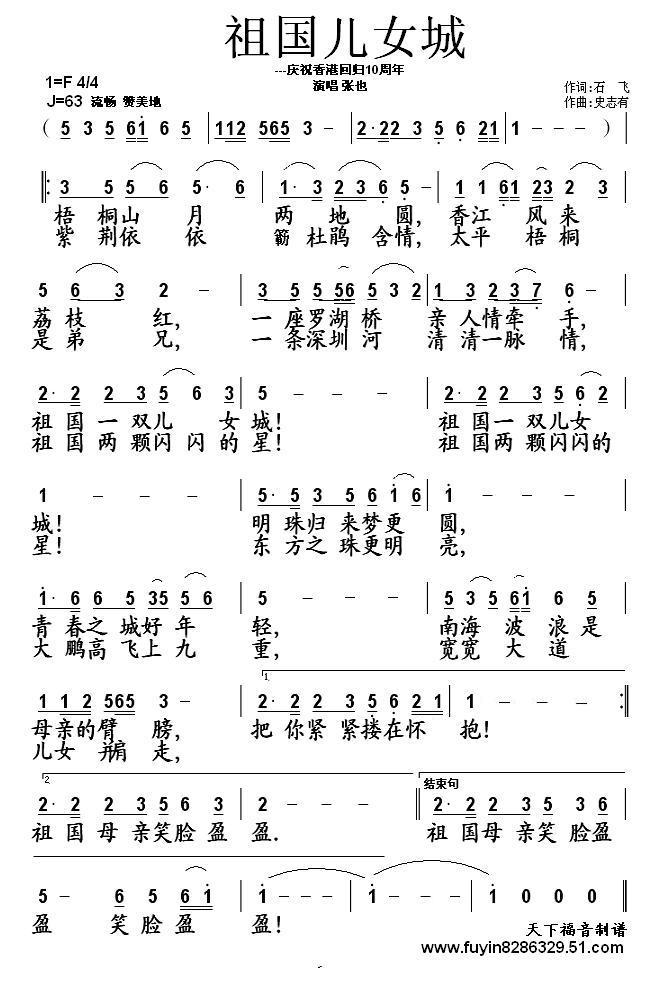 祖国儿女城
---庆祝香港回归10周年
演唱 张也
1=F 4/4
J=63 流畅 赞美地
作词:石 飞
作曲:史志有
( 5 3 5 6i 6 5 | 112 565 3 - | 2·22 3 5 6 21 | 1 - - - )
3 5 5 6 5· 6 | 1· 3 2 3 6 5 - | 1 1 61 23 2 3
梧 桐山 月 两 地 圆, 香江 风来
紫 荆依 依 簕 杜鹃 含情, 太平 梧桐
5 6 3 2 - | 3 5 5 56 5 3 2 | 1 3 2 3 7 6 -
荔 枝 红, 一 座罗 湖 桥 亲 人情牵 手,
是 弟 兄, 一 条深 圳 河 清 清一脉 情,
2· 2 2 3 5 6 3 | 5 - - - | 2· 2 2 3 5 6 2
祖 国 一 双儿 女 城! 祖 国一 双儿女
祖 国 两 颗闪 闪 的 星! 祖 国两 颗闪闪的
1 - - - | 5· 5 3 5 6 i 6 | i - - -
城! 明 珠归 来梦更 圆,
星! 东 方之 珠更明 亮,
i· 6 6 5 35 5 6 | 5 - - - | 5 3 5 6i 6 5
青 春之 城好 年 轻, 南海 波 浪 是
大 鹏高 飞上 九 重, 宽宽 大 道
1 1 2 565 3 - | 1. 2· 2 2 3 5 6 2 1 | 1 - - - :||
母亲的臂 膀, 把 你紧 紧搂在怀 抱!
儿女 并肩 走,
2. 2· 2 2 3 5 6 3 | 2 - - - || 结束句 2· 2 2 3 5 3 6
祖 国 母 亲笑脸 盈 盈. 祖 国母 亲笑 脸盈
5 - 6 5 6 i | i - - - | i - - - | 1 0 0 0 ||
盈 笑 脸盈 盈!
天下福音制谱
www.fuyin8286329.51.com